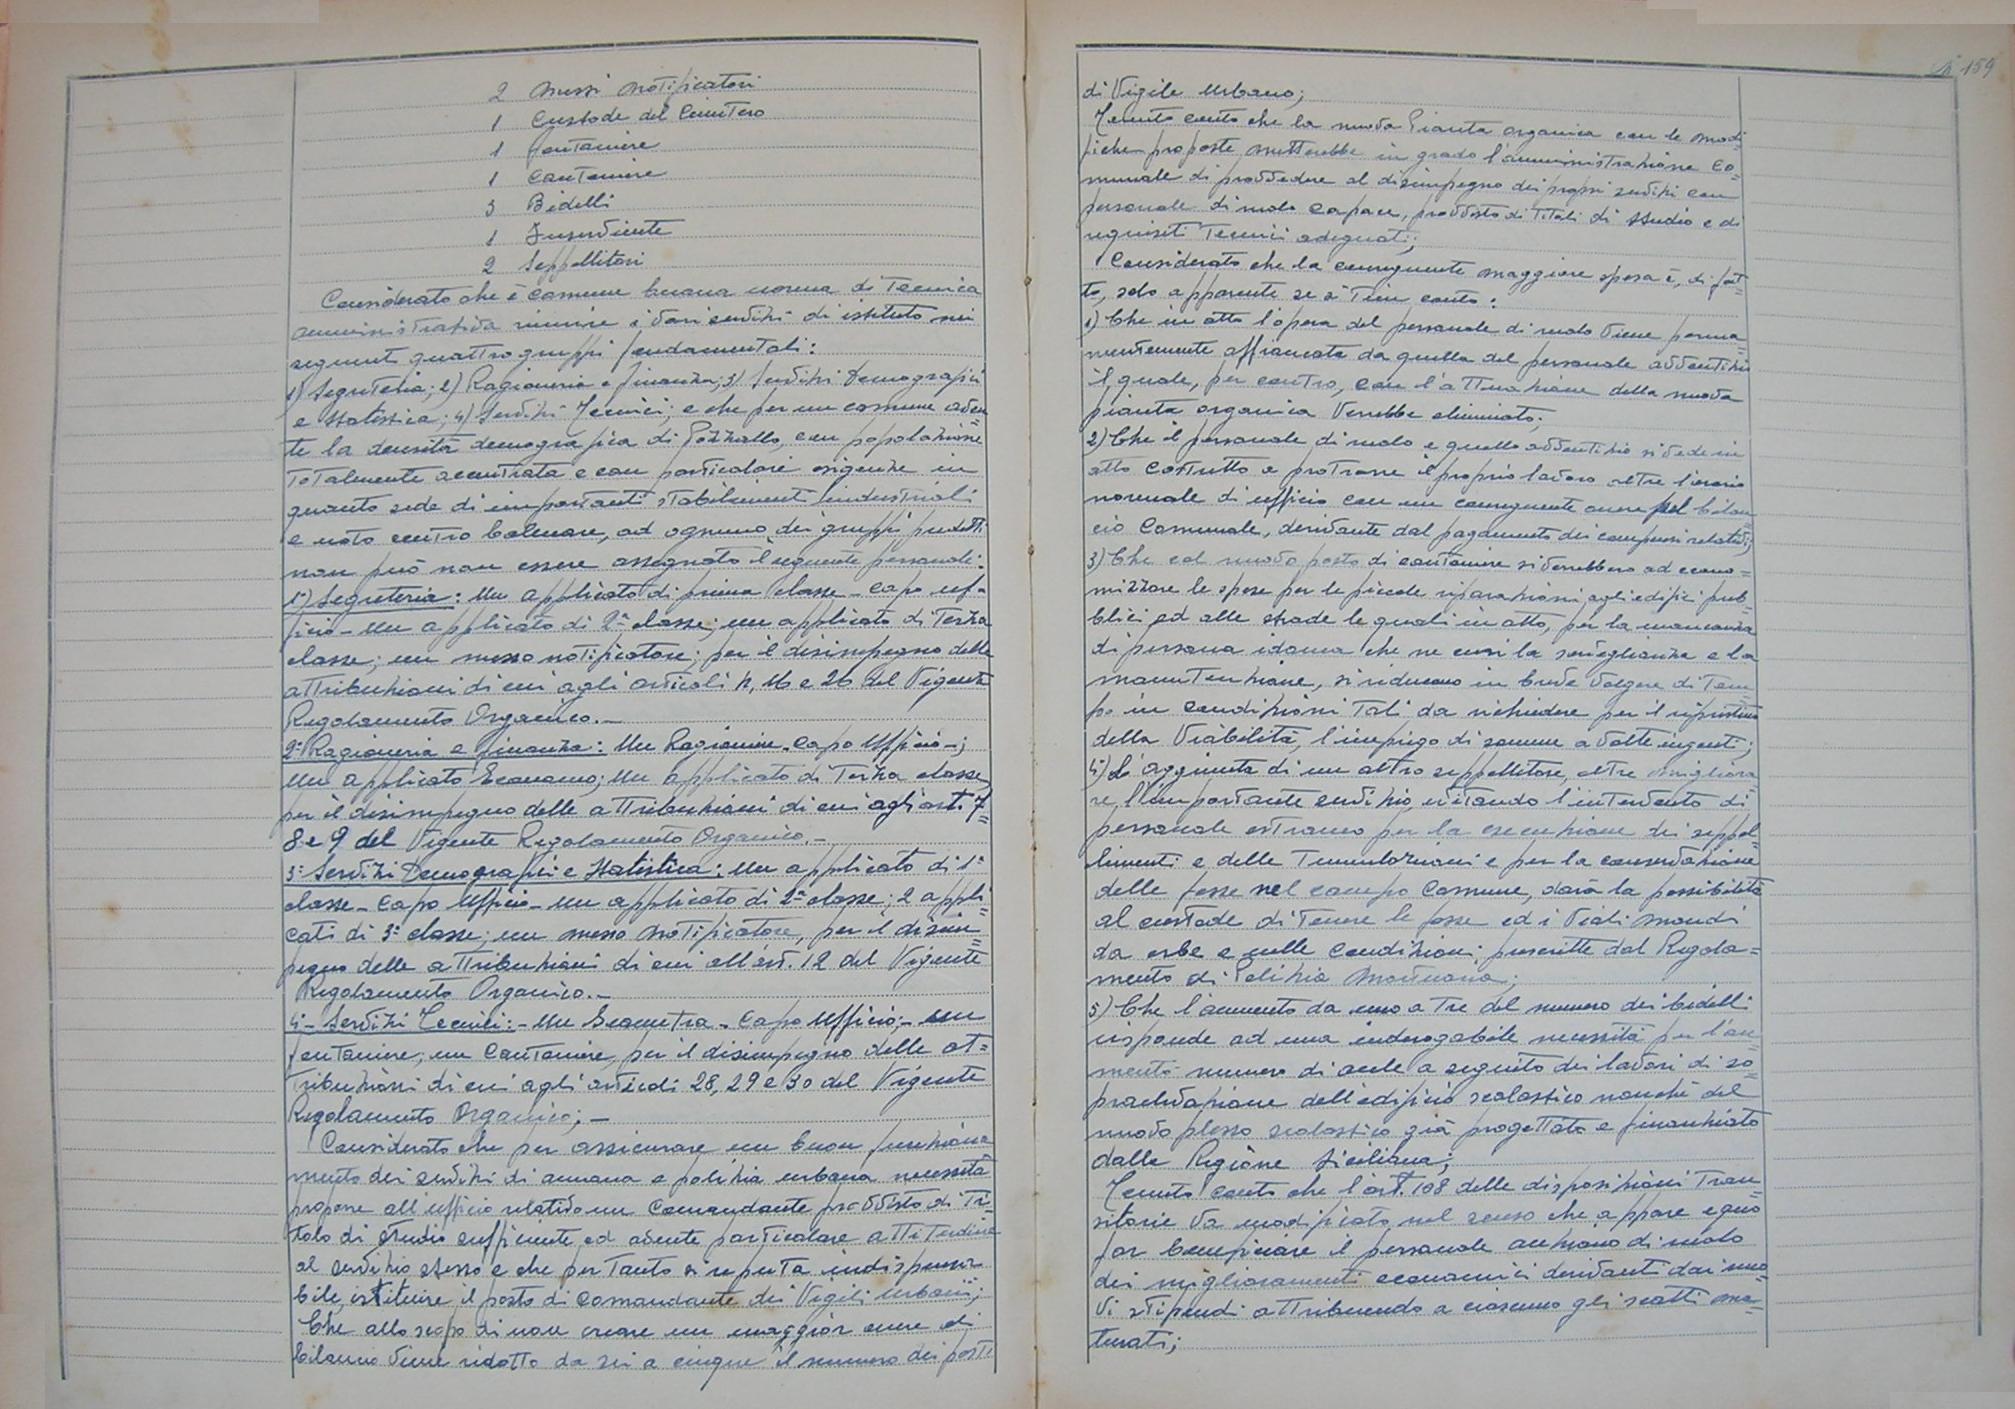 2 Messi notificatori
1 Custode del Cimitero
1 fontaniere
1 Cantoniere
3 Bidelli
1 Inserviente
2 Seppellitori
Considerato che è comune buona norma di Tecnica
amministrativa riunire i vari servizi di istituto nei
seguenti quattro gruppi fondamentali:
1) Segreteria; 2) Ragioneria e finanza; 3) Servizi Demografici
e statistica; 4) Servizi Tecnici; e che per un comune aven
te la densità demografica di Pozzallo, con popolazione
Totalmente accentrata e con particolari esigenze in
quanto sede di importanti stabilimenti industriali
e noto centro balneare, ad ognuno dei gruppi predetti
non può non essere assegnato il seguente personale:
1°) Segreteria: Un applicato di prima classe - Capo uf=
ficio - Un applicato di 2ª classe; un applicato di Terza
classe; un messo notificatore; per il disimpegno delle
attribuzioni di cui agli articoli 16 e 26 del Vigente
Regolamento Organico.-
2° Ragioneria e finanza: Un Ragioniere - Capo Ufficio -;
Un applicato Economo; Un applicato di Terza classe
per il disimpegno delle attribuzioni di cui agli arti 7=
8 e 9 del Vigente Regolamento Organico.-
3° Servizi Demografici e Statistica: Un applicato di 1ª
classe - Capo Ufficio - Un applicato di 2ª classe; 2 appli=
cati di 3ª classe; un messo notificatore, per il disim=
pegno delle attribuzioni di cui all'art. 12 del Vigente
Regolamento Organico.-
4° - Servizi Tecnici: - Un Geometra - Capo Ufficio; - un
fontaniere; un Cantoniere, per il disimpegno delle at=
tribuzioni di cui agli articoli 28, 29 e 30 del Vigente
Regolamento Organico; -
Considerato che per assicurare un buon funziona
mento dei servizi di annona e polizia urbana necessita
preporre all'ufficio relativo un Comandante provvisto di Ti=
tolo di studio sufficiente ed avente particolare attitudine
al servizio stesso e che per Tanto si reputa indispensa
bile istituire il posto di Comandante dei Vigili Urbani;
Che allo scopo di non creare un maggior onere di
bilancio viene ridotto da sei a cinque il numero dei posti
159
di Vigile Urbano;
Tenuto conto che la nuova Pianta organica con le modi
fiche proposte metterebbe in grado l'amministrazione Co=
munale di provvedere al disimpegno dei propri servizi con
personale di ruolo capace, provvisto di Titoli di studio e di
requisiti Tecnici adeguati;
Considerato che la conseguente maggiore spesa è, di fat=
to, solo apparente se si Tien conto:
1) Che in atto l'opera del personale di ruolo viene perma=
nentemente affiancata da quella del personale avventizio
il quale, per contro, con l'attuazione della nuova
pianta organica verrebbe eliminato;
2) Che il personale di ruolo e quello avventizio si vede in
atto costretto a protrarre il proprio lavoro oltre l'orario
normale di ufficio con un conseguente onere pel bilan=
cio Comunale, derivante dal pagamento dei compensi relativi;
3) Che col nuovo posto di cantoniere si verrebbero ad econo=
mizzare le spese per le piccole riparazioni agli edifici pub=
blici ed alle strade le quali in atto, per la mancanza
di persona idonea che ne curi la sorveglianza e la
manutenzione, si riducono in breve volgere di Tem=
po in condizioni Tali da richiedere per il ripristino
della Viabilità, l'impiego di somme a volte ingenti;
4) L'aggiunta di un altro seppellitore, oltre migliora
re l'importante servizio, evitando l'intervento di
personale estraneo per la esecuzione dei seppel=
limenti e delle Tumulazioni e per la conservazione
delle fosse nel campo Comune, darà la possibilità
al custode di Tenere le fosse ed i Viali mondi
da erbe e nelle condizioni prescritte dal Regola=
mento di Polizia Mortuaria;
5) Che l'aumento da uno a tre del numero dei bidelli
risponde ad una inderogabile necessità per l'au
mento numero di aule a seguito dei lavori di so=
praelevazione dell'edificio scolastico nonchè del
nuovo plesso scolastico già progettato e finanziato
dalla Regione Siciliana;
Tenuto conto che l'art. 108 delle disposizioni Tran=
sitorie va modificato nel senso che appare equo
far beneficiare il personale anziano di ruolo
dei miglioramenti economici derivanti dai nuo=
vi stipendi attribuendo a ciascuno gli scatti ma=
turati;